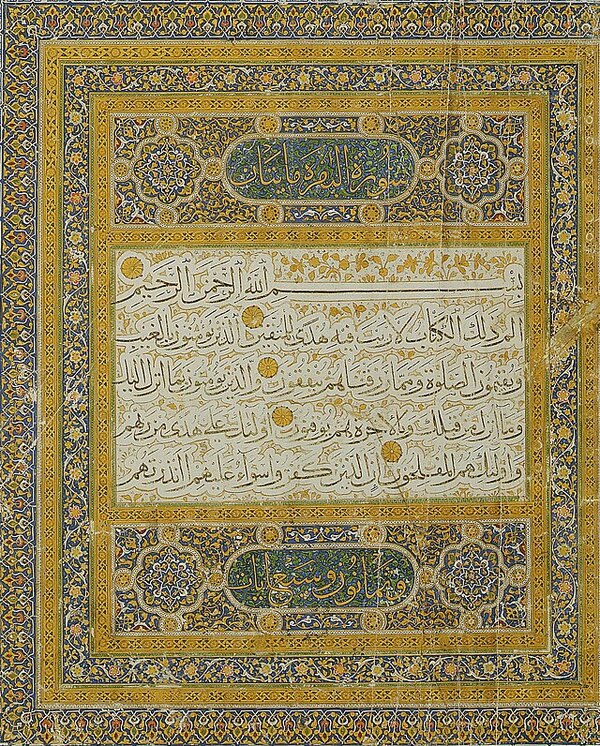 سورة البقرة مائتان
بسم الله الرحمن الرحيم
الم ذلك الكتاب لا ريب فيه هدى للمتقين الذين يؤمنون بالغيب
ويقيمون الصلوة ومما رزقناهم ينفقون والذين يؤمنون بما انزل اليك
وما انزل من قبلك وبالآخرة هم يوقنون اولئك على هدى من ربهم
واولئك هم المفلحون ان الذين كفروا سواء عليهم ءانذرتهم
وثمانون وسبع آيات